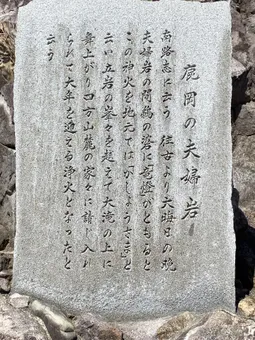 鹿岡の夫婦岩
南路志に云う 往古より大晦日の晩
夫婦岩の間鵜の碆に竜燈がともると
この神火を地元では「がしょうさま」と
云い立岩の峯々を越えて大滝の上に
舞上がり四方山麓の家々に請じ入れ
られて大年を迎える浄火となったと
云う